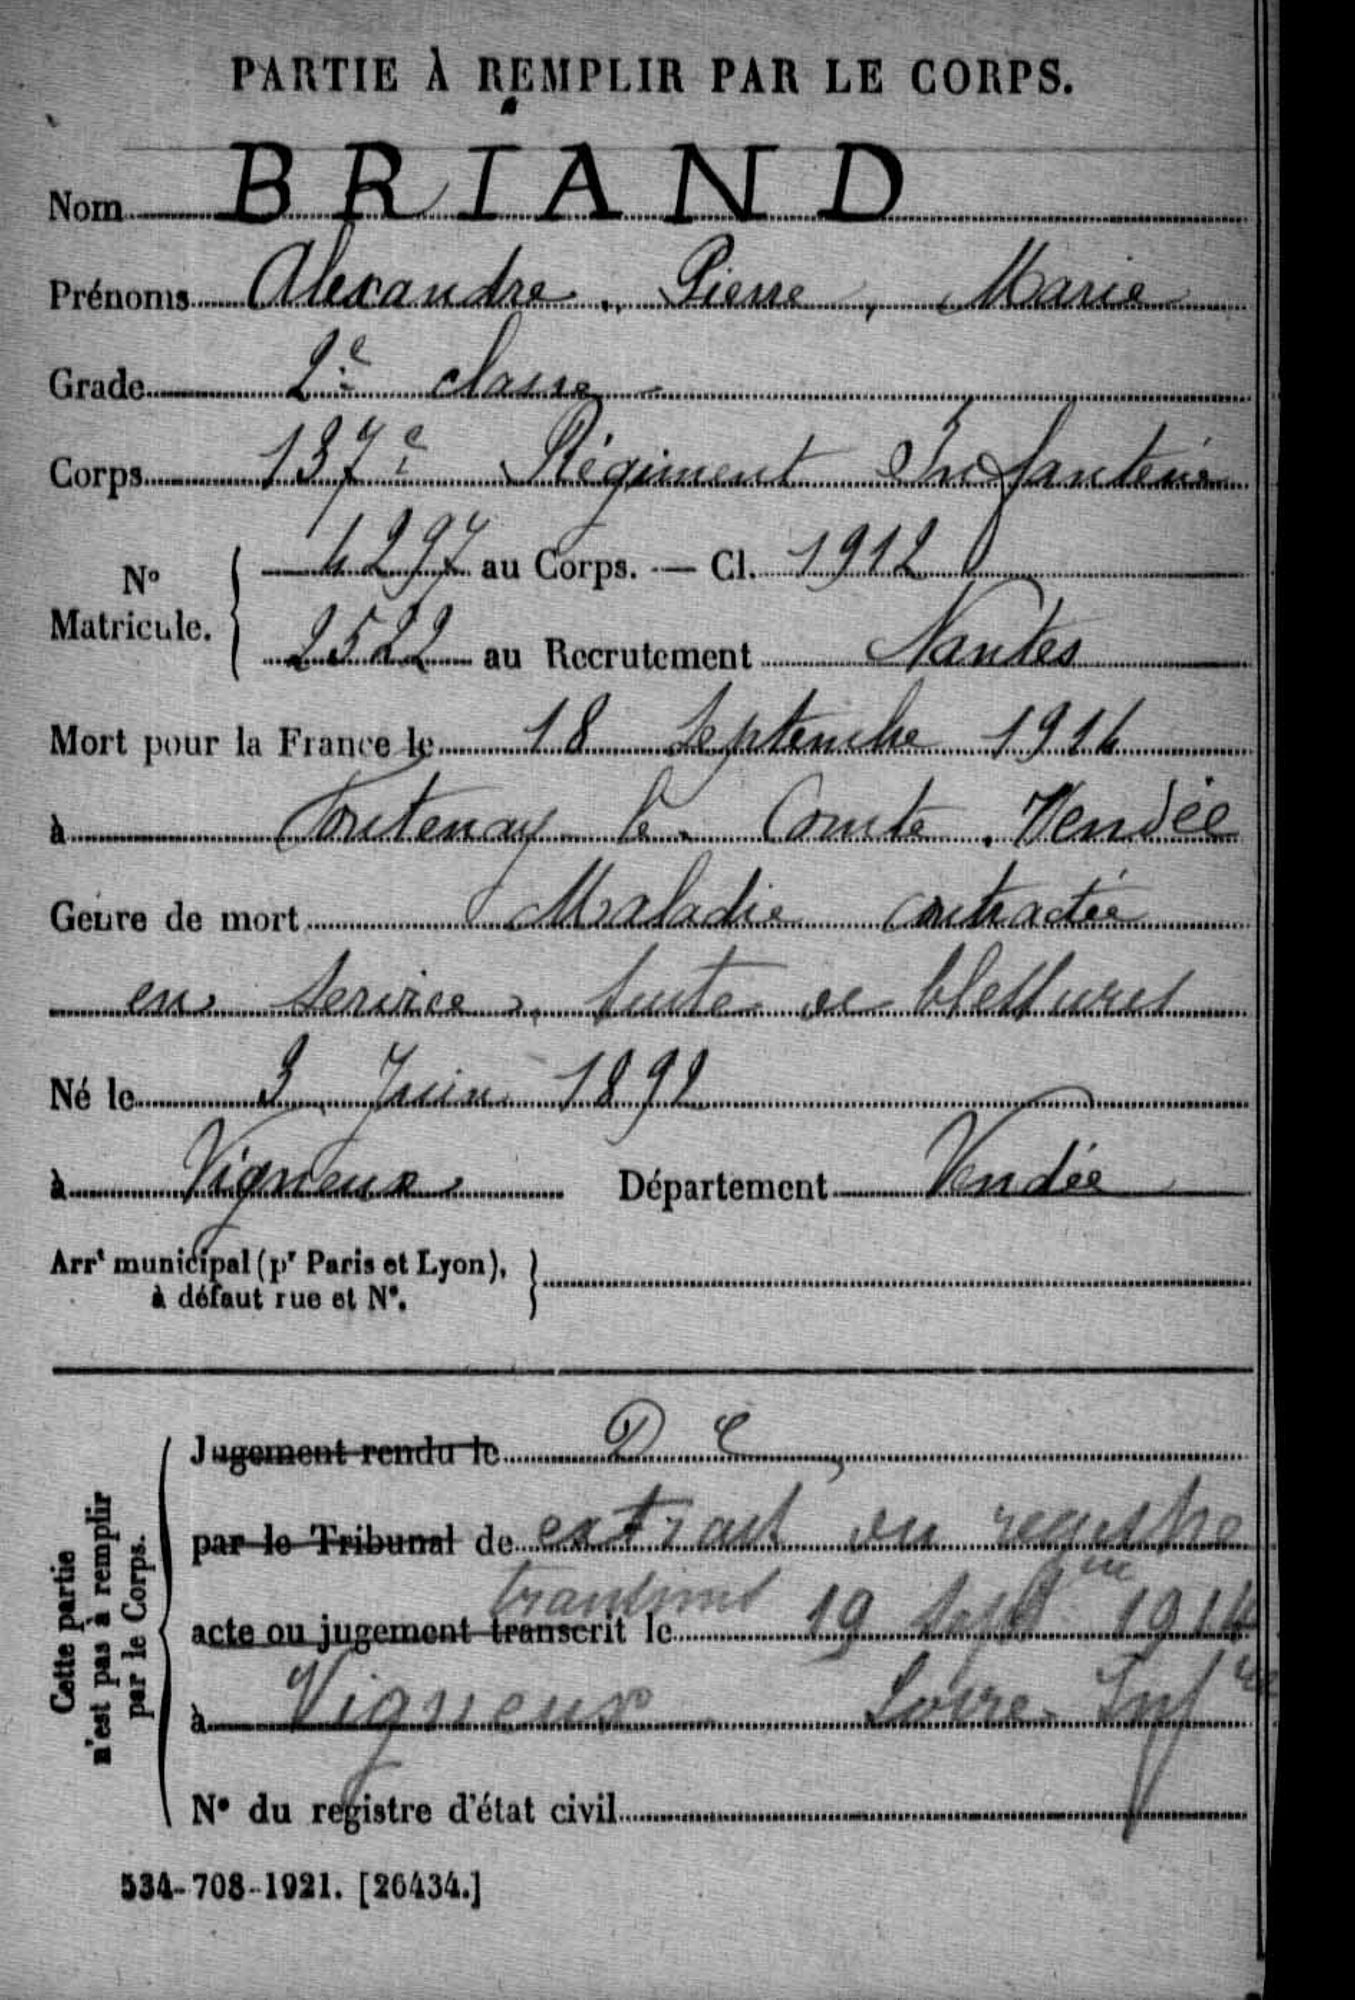 PARTIE À REMPLIR PAR LE CORPS.
Nom BRIAND
Prénoms Alexandre, Pierre, Marie
Grade 2e classe
Corps 137e Régiment Infanterie
No Matricule. 4297 au Corps. — Cl. 1912
2522 au Recrutement Nantes
Mort pour la France le 18 Septembre 1914
à Fontenay le Comte Vendée
Genre de mort Maladie contractée
en service, suite de blessures
Né le 3 Juin 1892
à Vigneux Département Vendée
Arrt municipal (pr Paris et Lyon),
à défaut rue et No.
Cette partie
n'est pas à remplir
par le Corps.
Jugement rendu le D C
par le Tribunal de extrait du registre
transmis
acte ou jugement transcrit le 19 Sept 1914
à Vigneux Loire Infre
No du registre d'état civil
534-708-1921. [26434.]